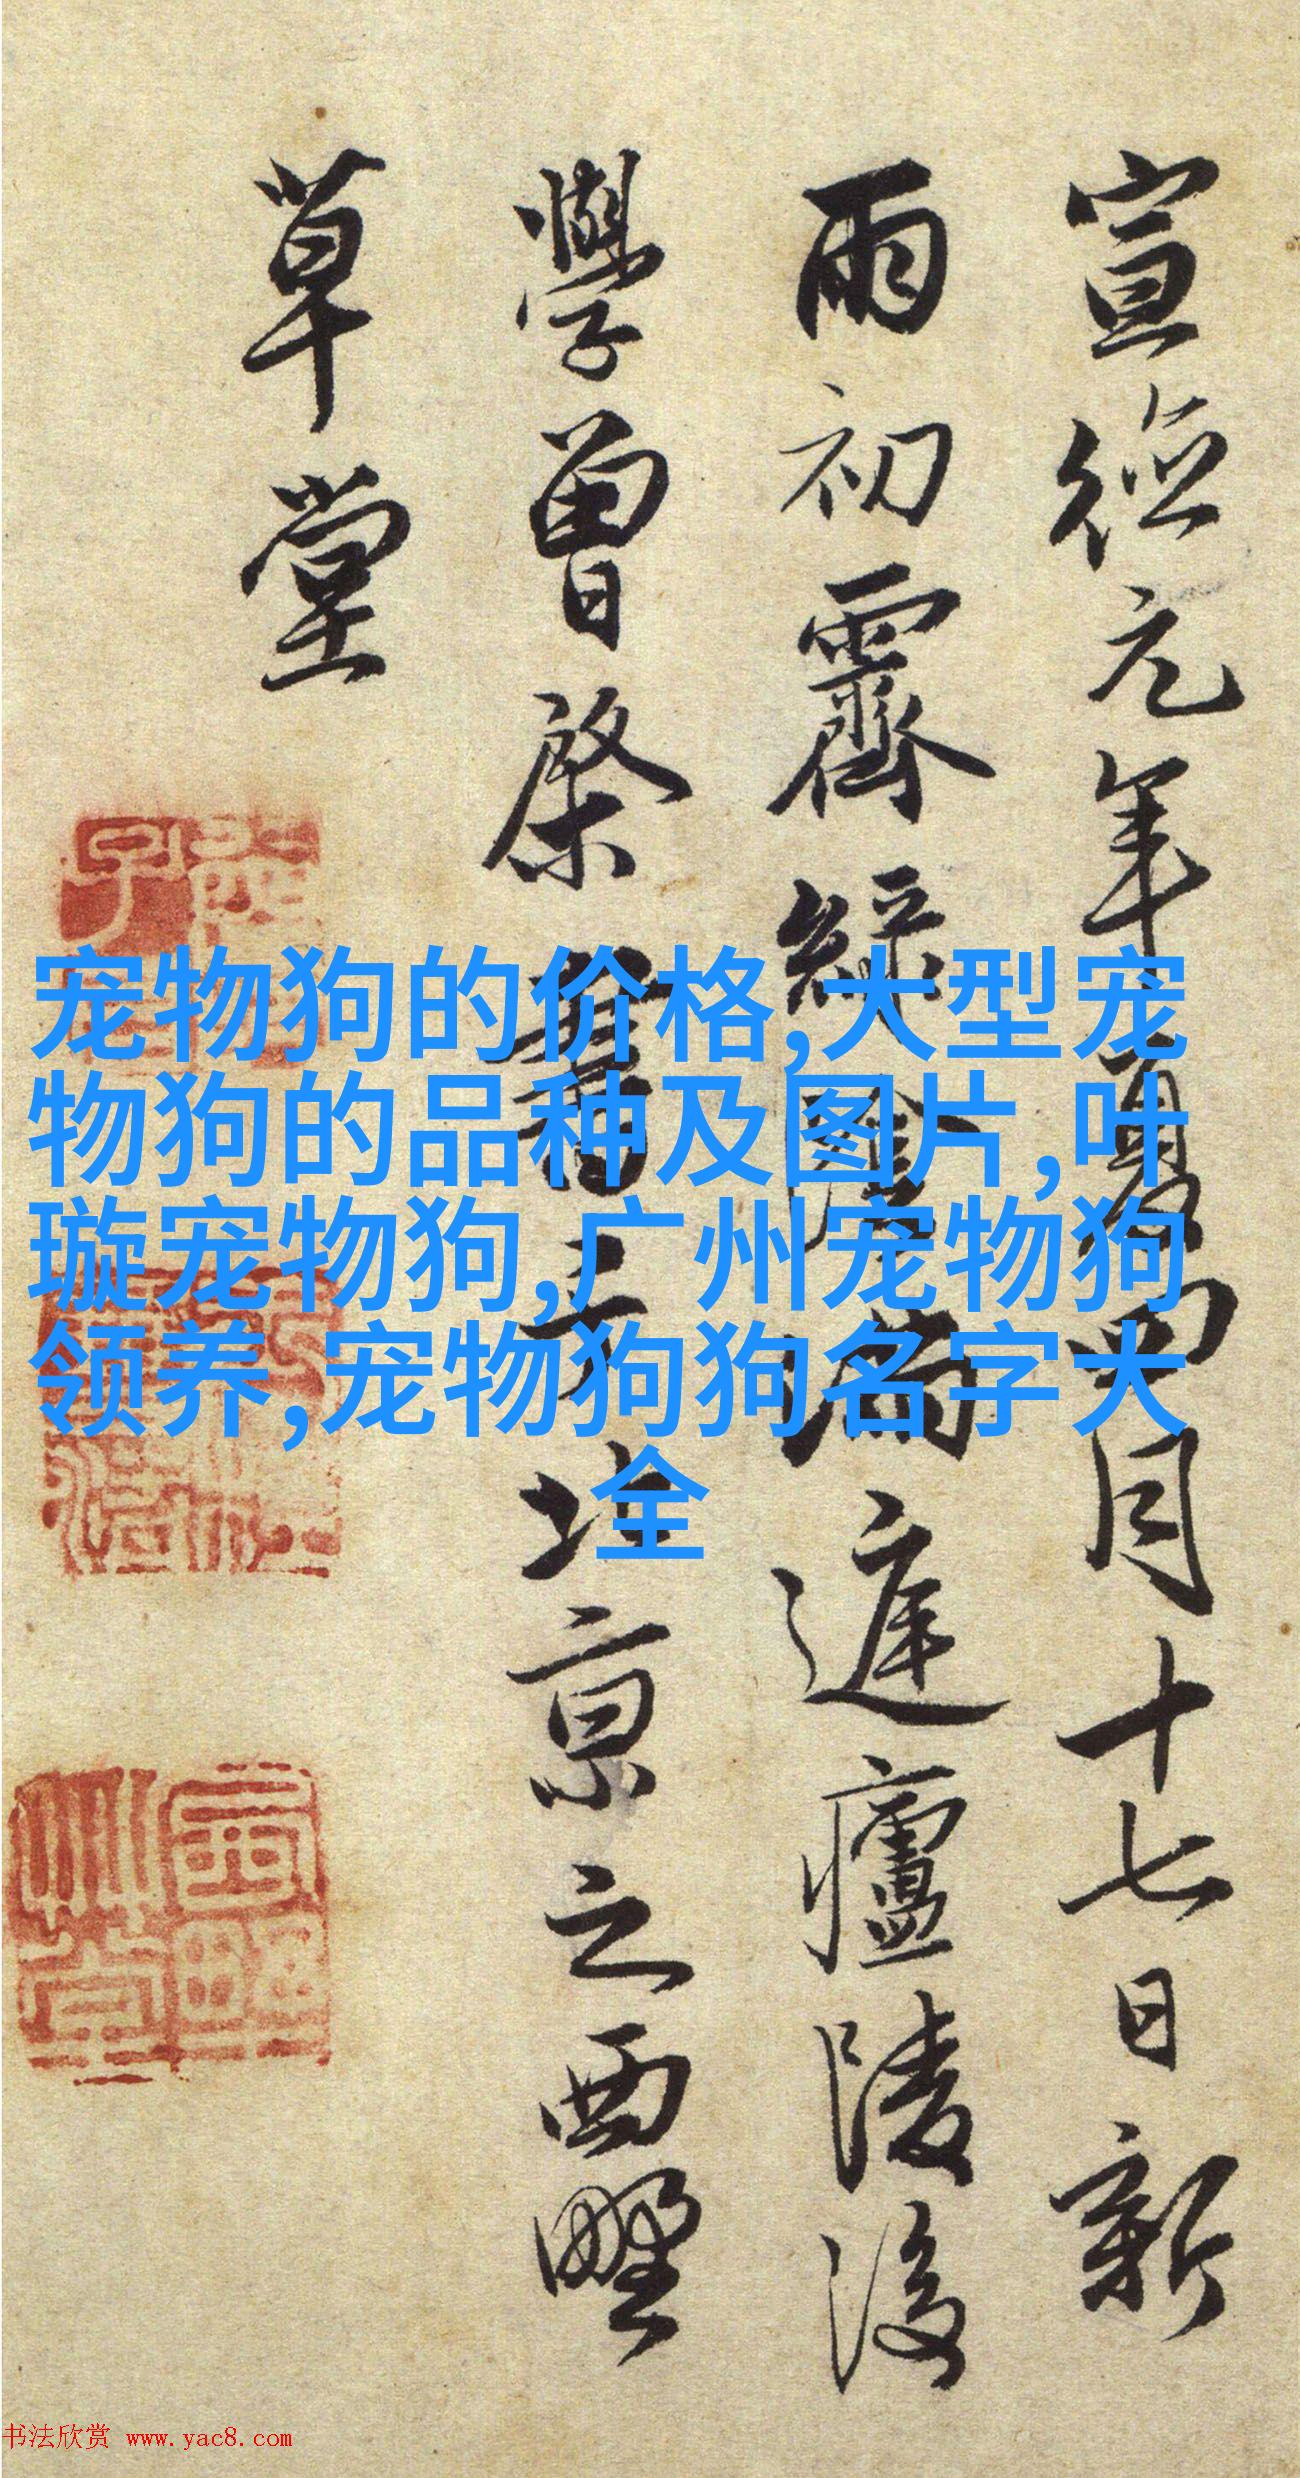 宣德元年夏四月十七日新
雨初霽緑陰滿庭廬陵後
學曾棨書于北京之西墅
草堂
宠物狗的价格,大型宠
物狗的品种及图片,叶
璇宠物狗,广州宠物狗
领养,宠物狗狗名字大
全
书法欣赏 www.yac8.com